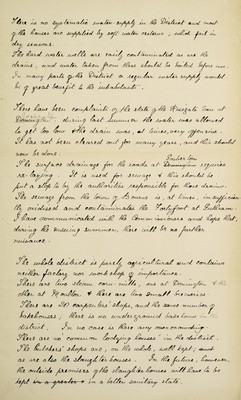 There is no systematic water supply in the District and most
of the houses are supplied by soft water cisterns, which fail in
dry seasons.
The hard water wells are easily contaminated as are the
drains, and water taken from these should be boiled before use.
In many parts of the District a regular water supply would
be of great benefit to the inhabitants.
There have been complaints of the state of the Moat at
Donnington, during last summer the water was allowed
to get too low & the drain was, at times, very offensive.
It has not been cleaned out for many years, and this should
now be done.
The surface drainage for the roads at Donnington requires
re-laying. It is used for sewage & this should be
put a stop to by the authorities responsible for those drains.
The sewage from the town of Bourne is, at times, insufficien
tly oxidised and contaminates the Forty foot at Guthram.
I have communicated with the Commissioners and hope that,
during the ensuing summer, there will be no further
nuisance.
The whole district is purely agricultural and contains
neither factory nor workshop of importance.
There are two steam corn-mills, one at Donington & the
other at Moulton & there are two small breweries
There are 20 carpenters' shops, and the same number of
bakehouses, there is no underground bakehouse in the
district. In no case is there any overcrowding.
There are no common lodging houses in the district.
The butchers' shops are, on the whole, well kept, and
so are also the slaughter houses. In the future, however,
the outside premises of the slaughter houses will have to be
kept in a better sanitary state.